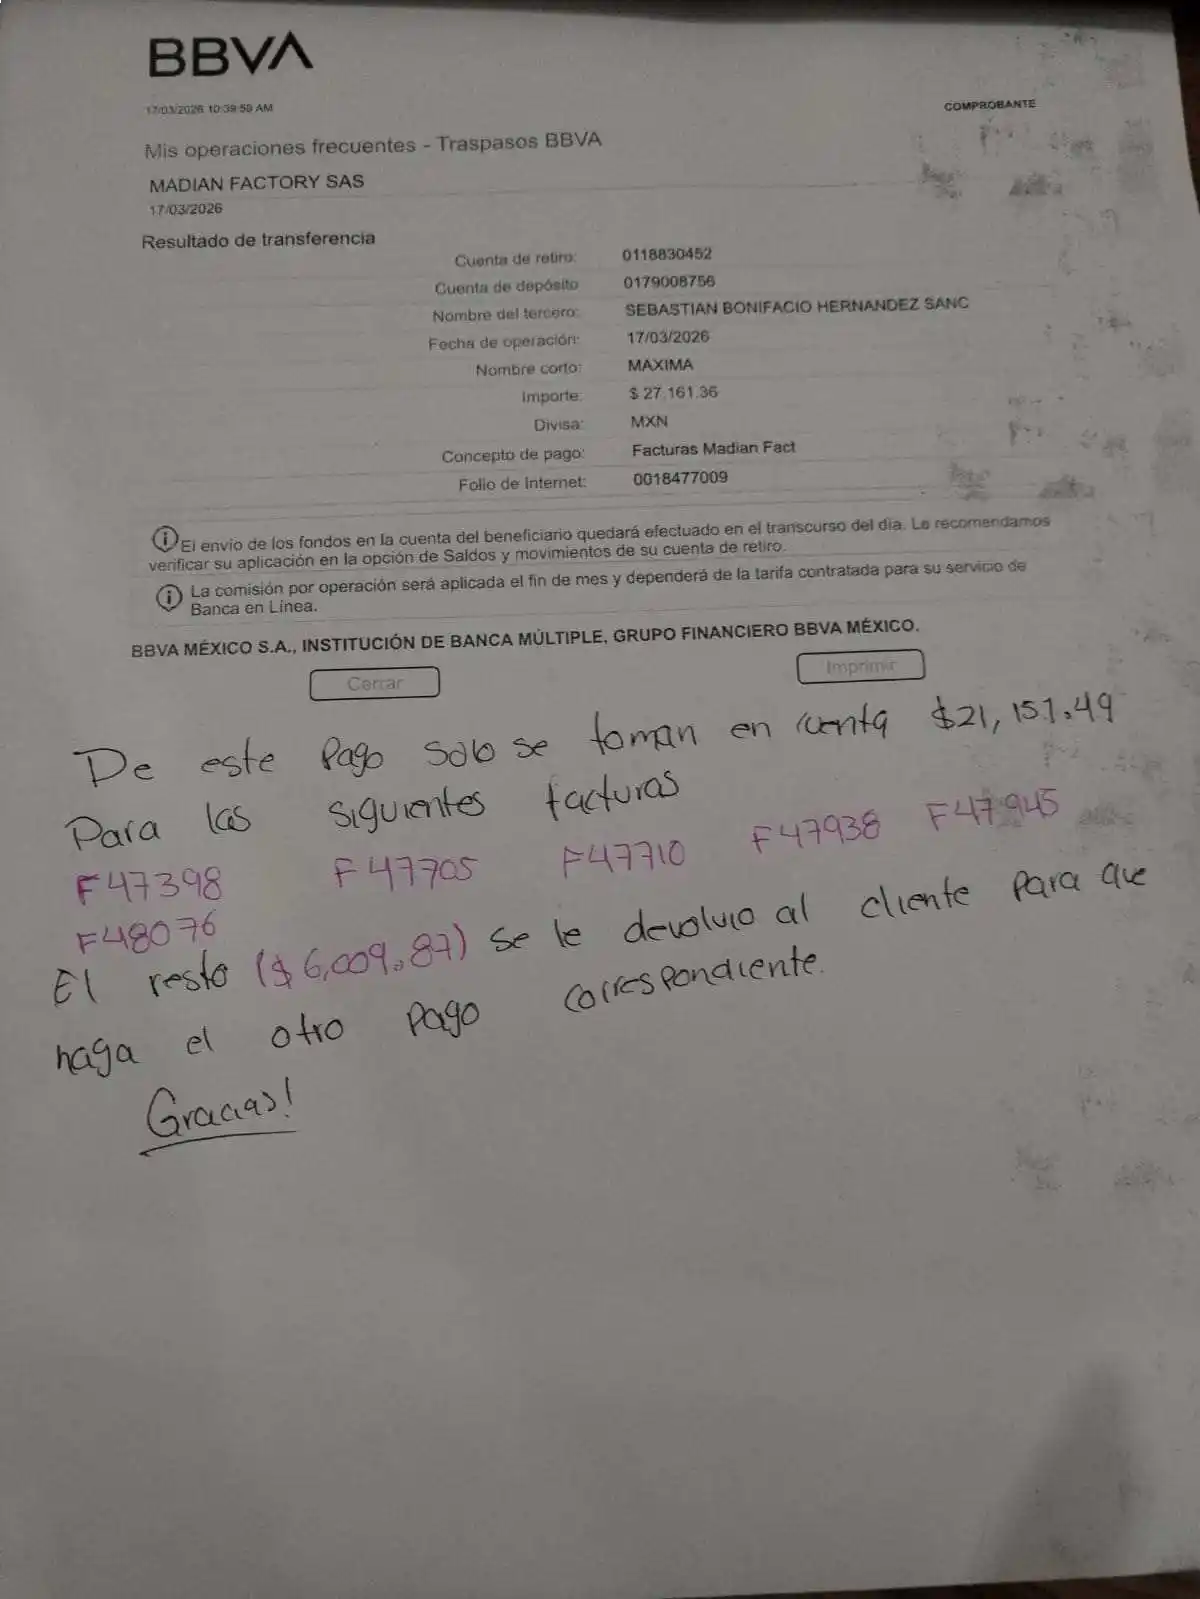 BBVA
17/03/2026 10:39:59 AM
COMPROBANTE
Mis operaciones frecuentes - Traspasos BBVA
MADIAN FACTORY SAS
17/03/2026
Resultado de transferencia
Cuenta de retiro: 0118830452
Cuenta de depósito 0179008756
Nombre del tercero: SEBASTIAN BONIFACIO HERNANDEZ SANC
Fecha de operación: 17/03/2026
Nombre corto: MAXIMA
Importe: $ 27,161.36
Divisa: MXN
Concepto de pago: Facturas Madian Fact
Folio de Internet: 0018477009
El envío de los fondos en la cuenta del beneficiario quedará efectuado en el transcurso del día. Le recomendamos
verificar su aplicación en la opción de Saldos y movimientos de su cuenta de retiro.
La comisión por operación será aplicada el fin de mes y dependerá de la tarifa contratada para su servicio de
Banca en Línea.
BBVA MÉXICO S.A., INSTITUCIÓN DE BANCA MÚLTIPLE, GRUPO FINANCIERO BBVA MÉXICO.
Cerrar Imprimir
De este Pago solo se toman en cuenta $21,151.49
Para las siguientes facturas
F47398 F47705 F47710 F47938 F47945
F48076
El resto ($6,009.87) se le devolvio al cliente para que
haga el otro Pago correspondiente.
Gracias!